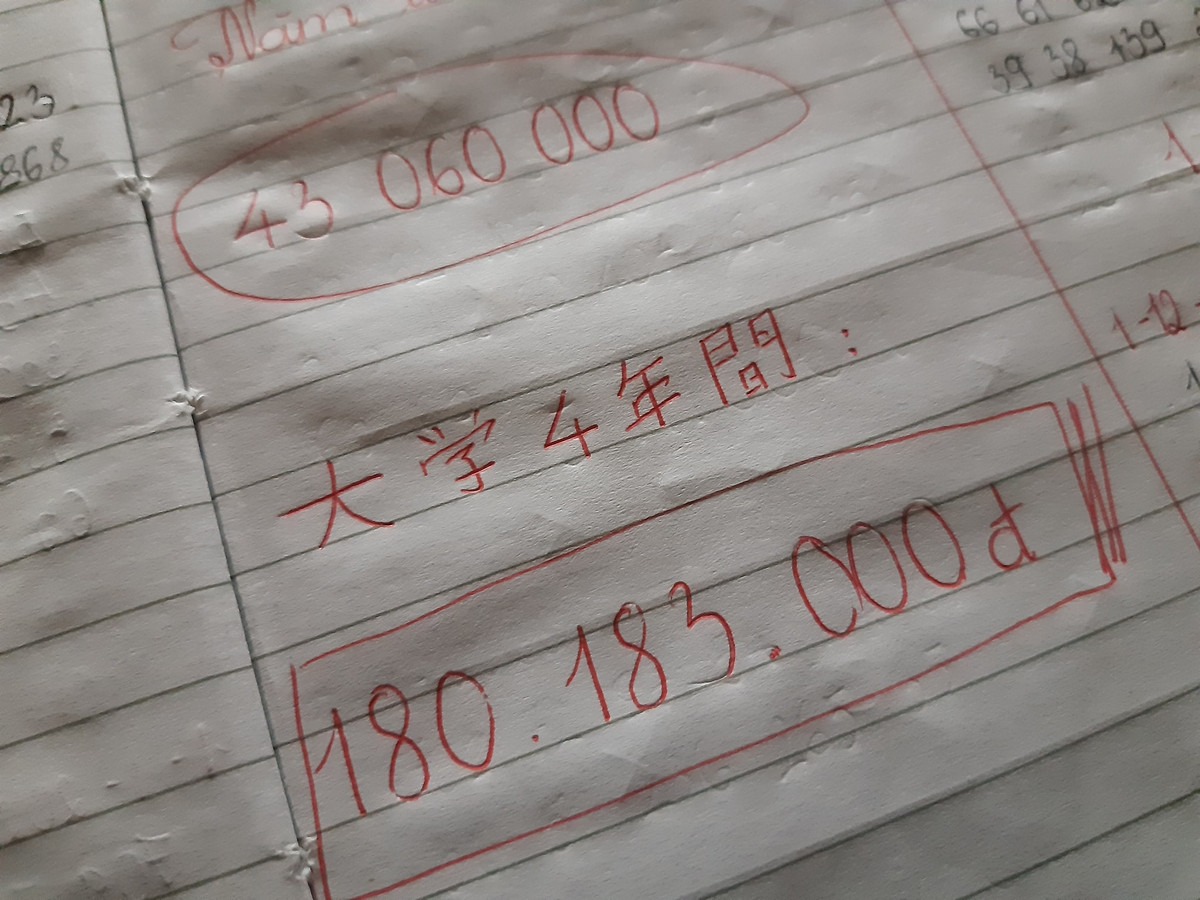 Năm
43 060 000
大学4年間:
180.183.000đ
23
868
66 61
39 38 139
1
1-12
1